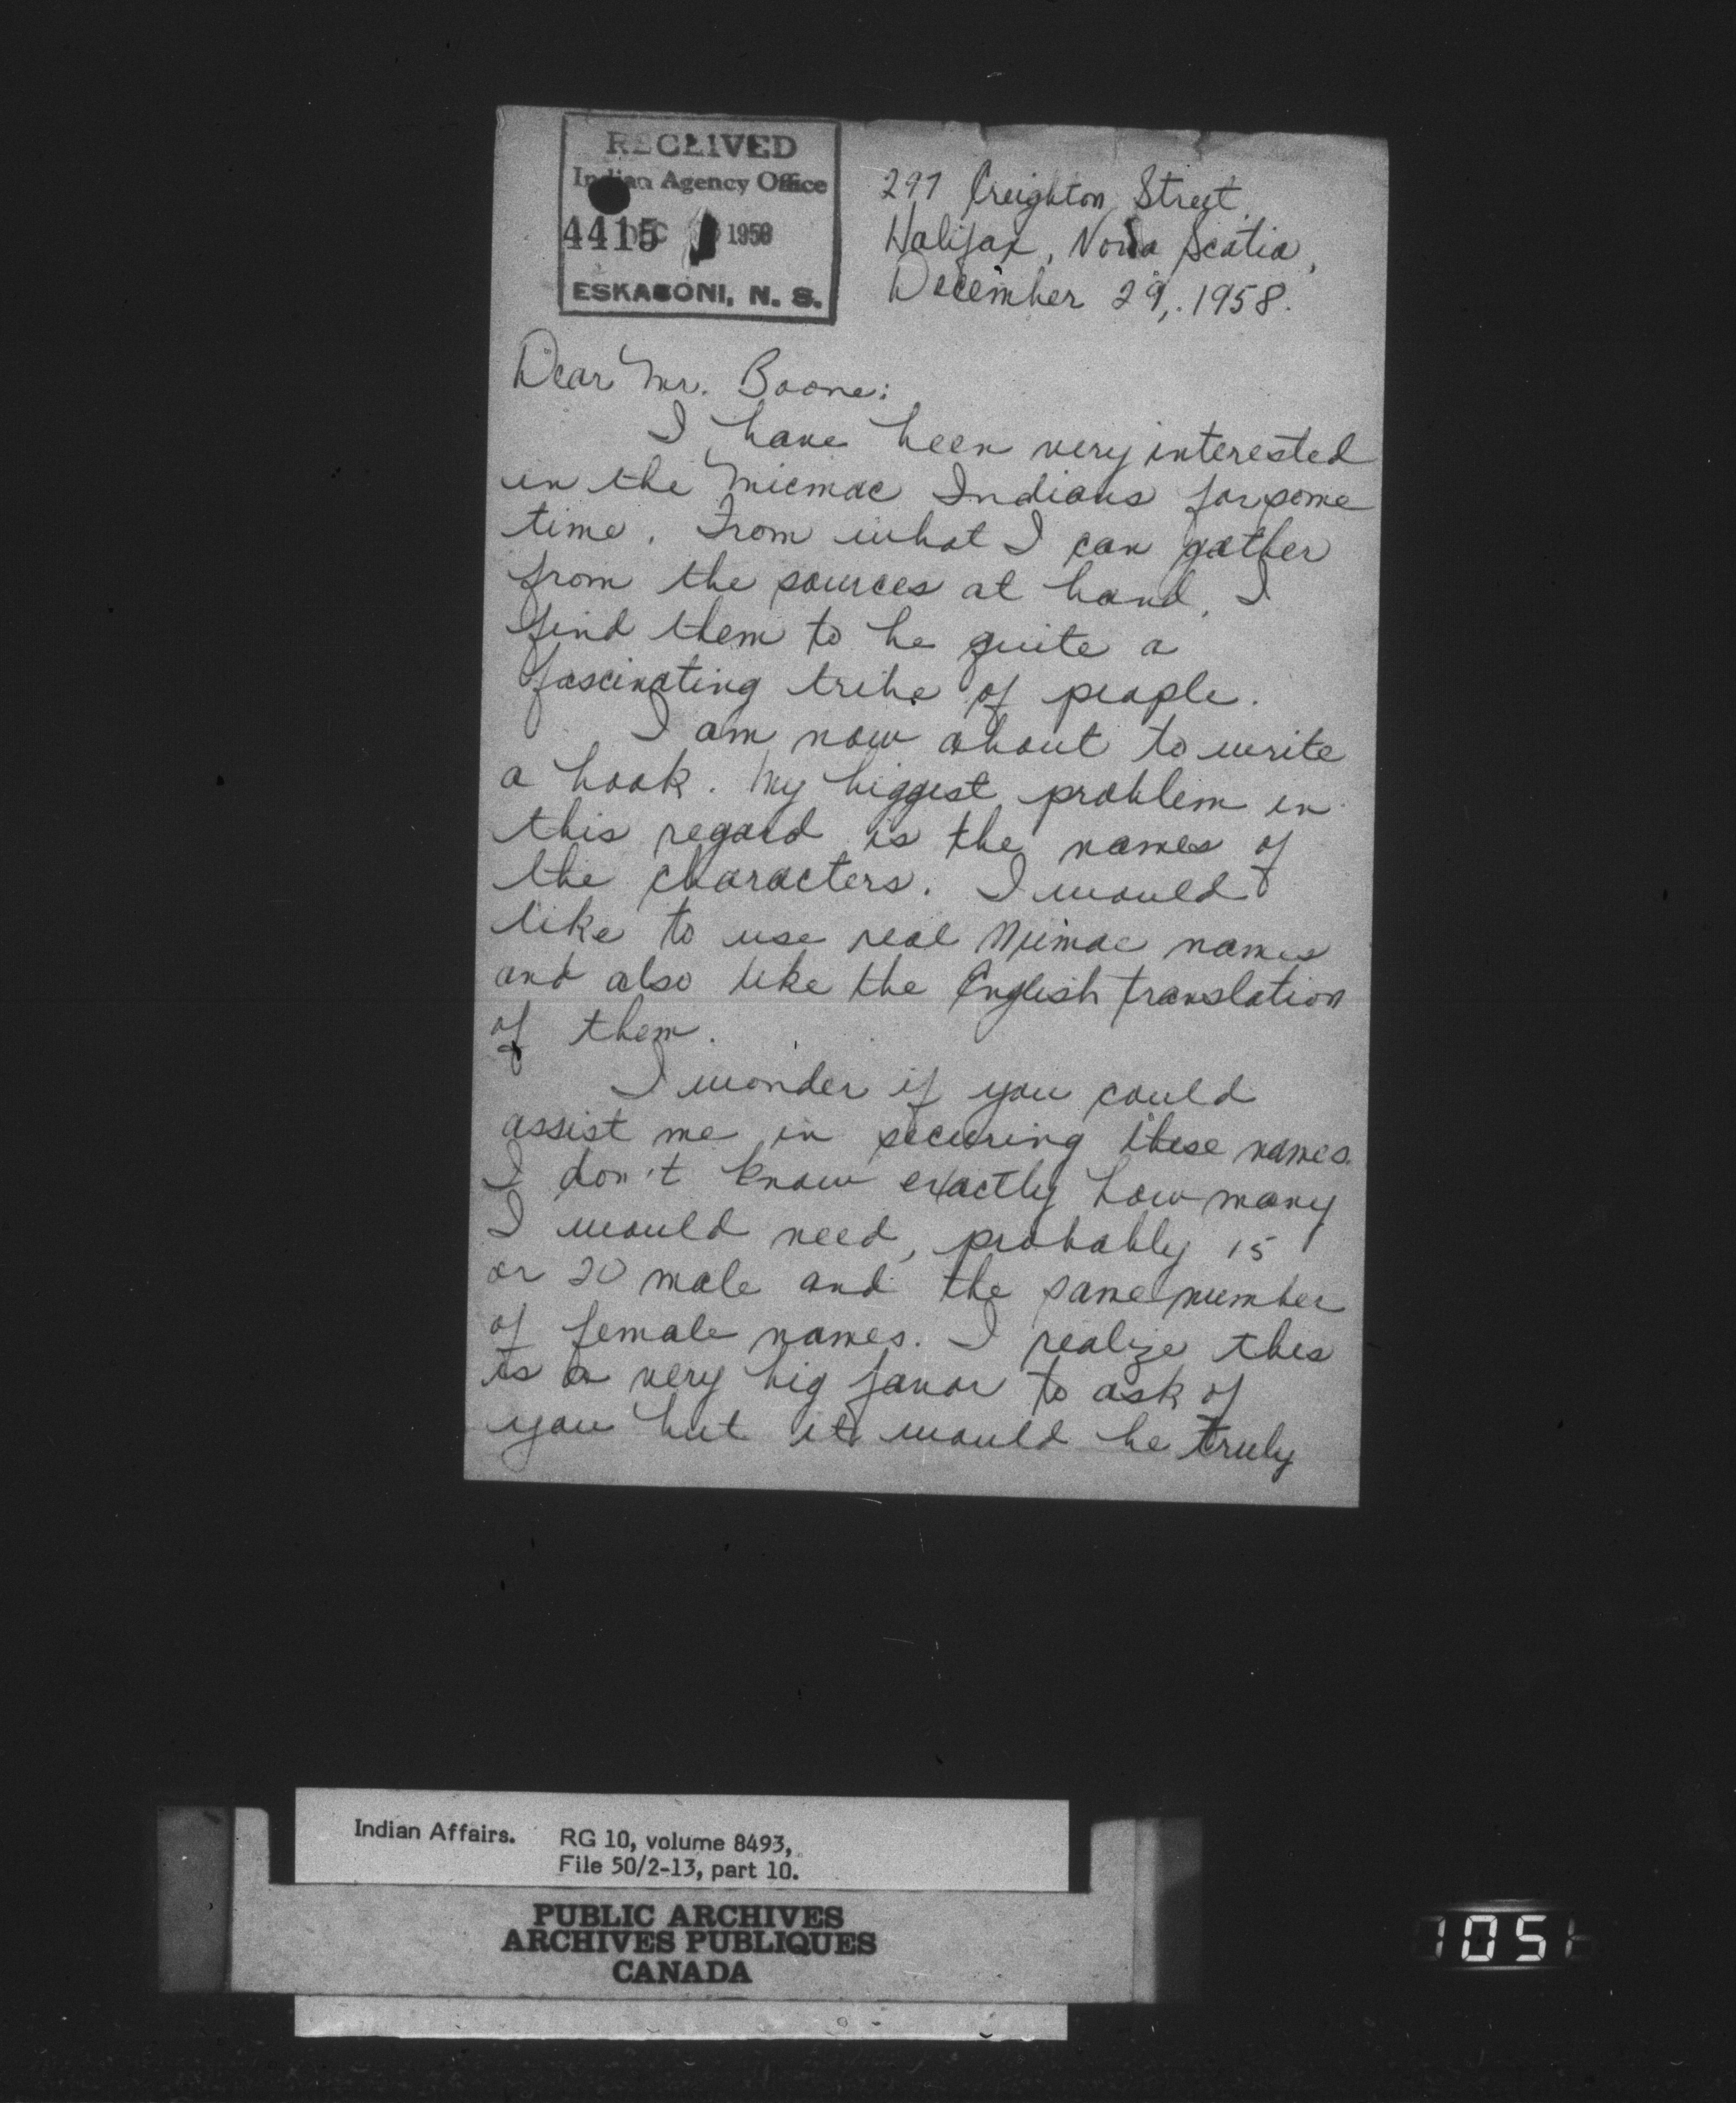 RECEIVED
Indian Agency Office
4415 DEC 1958
ESKASONI, N. S.
297 Creighton Street,
Halifax, Nova Scotia,
December 29, 1958.
Dear Mr. Boone:
I have been very interested
in the Micmac Indians for some
time. From what I can gather
from the sources at hand, I
find them to be quite a
fascinating tribe of people.
I am now about to write
a book. My biggest problem in
this regard is the names of
the characters. I would
like to use real Micmac names
and also like the English translation
of them.
I wonder if you could
assist me in securing these names.
I don't know exactly how many
I would need, probably 15
or 20 male and the same number
of female names. I realize this
is a very big favor to ask of
you but it would be truly
Indian Affairs. RG 10, volume 8493,
File 50/2-13, part 10.
PUBLIC ARCHIVES
ARCHIVES PUBLIQUES
CANADA